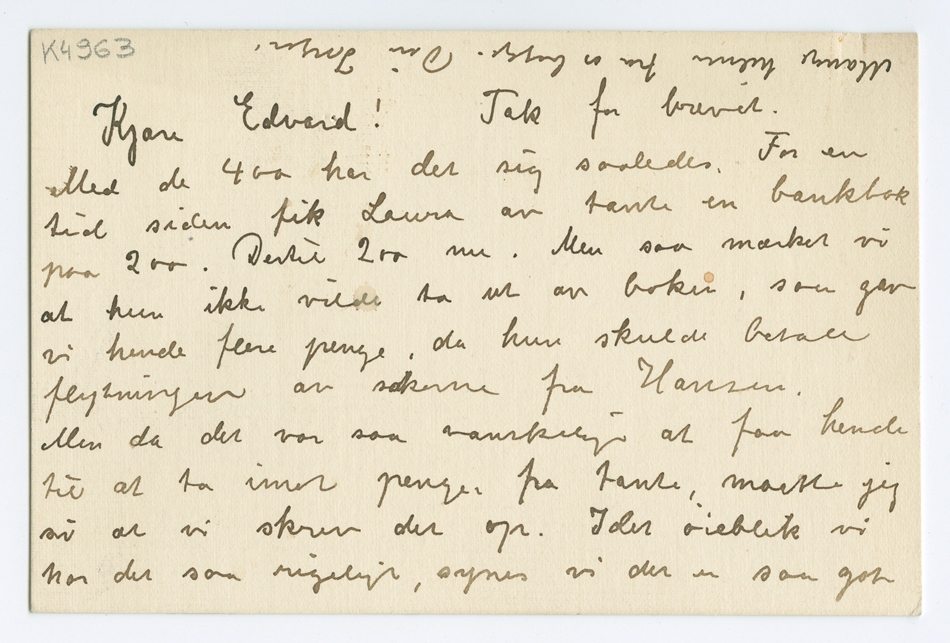 K4963
Mange hilsner fra os begge. Din Inger.
Kjære Edvard! Tak for brevet.
Med de 400 har det sig saaledes. For en
tid siden fik Laura av tante en bankbok
paa 200. Dertil 200 nu. Men saa mærket vi
at hun ikke vilde ta ut av boken, saa gav
vi hende flere penge, da hun skulde betale
flytningen av sakerne fra Hansen.
Men da det var saa vanskelig at faa hende
til at ta imot penger fra tante, maatte jeg
si at vi skrev det op. I det øieblik vi
har det saa rigeligt, synes vi det er saa godt